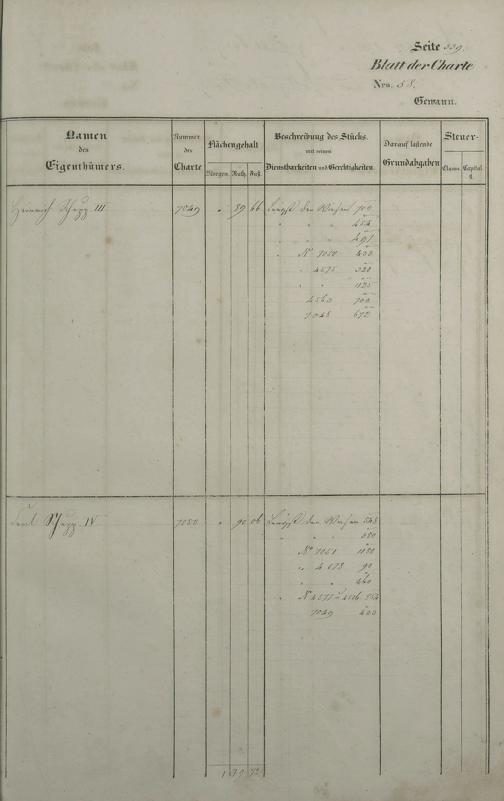 Seite 339.
Blatt der Charte
Nro. 58.
Gewann.
Namen des Eigenthümers.
Nummer der Charte
Flächengehalt
Morgen. Ruth. Fuß.
Beschreibung des Stücks. mit seinen Dienstbarkeiten und Gerechtigkeiten.
Darauf haftende Grundabgaben
Steuer-
Classe. Capital. fl.
Heinrich Schupp III 7049 " 39 66 Längst den Wiesen 700
" " " 454
" " " 491
" No 7050 400
" 4575 320
" " 1125
4560 700
7048 672
Schupp IV 7050 " 90 06 Längst den Wiesen 548
" " " 650
No 7051 1150
" 4573 90
" " 460
" No 4577 u
7049 400